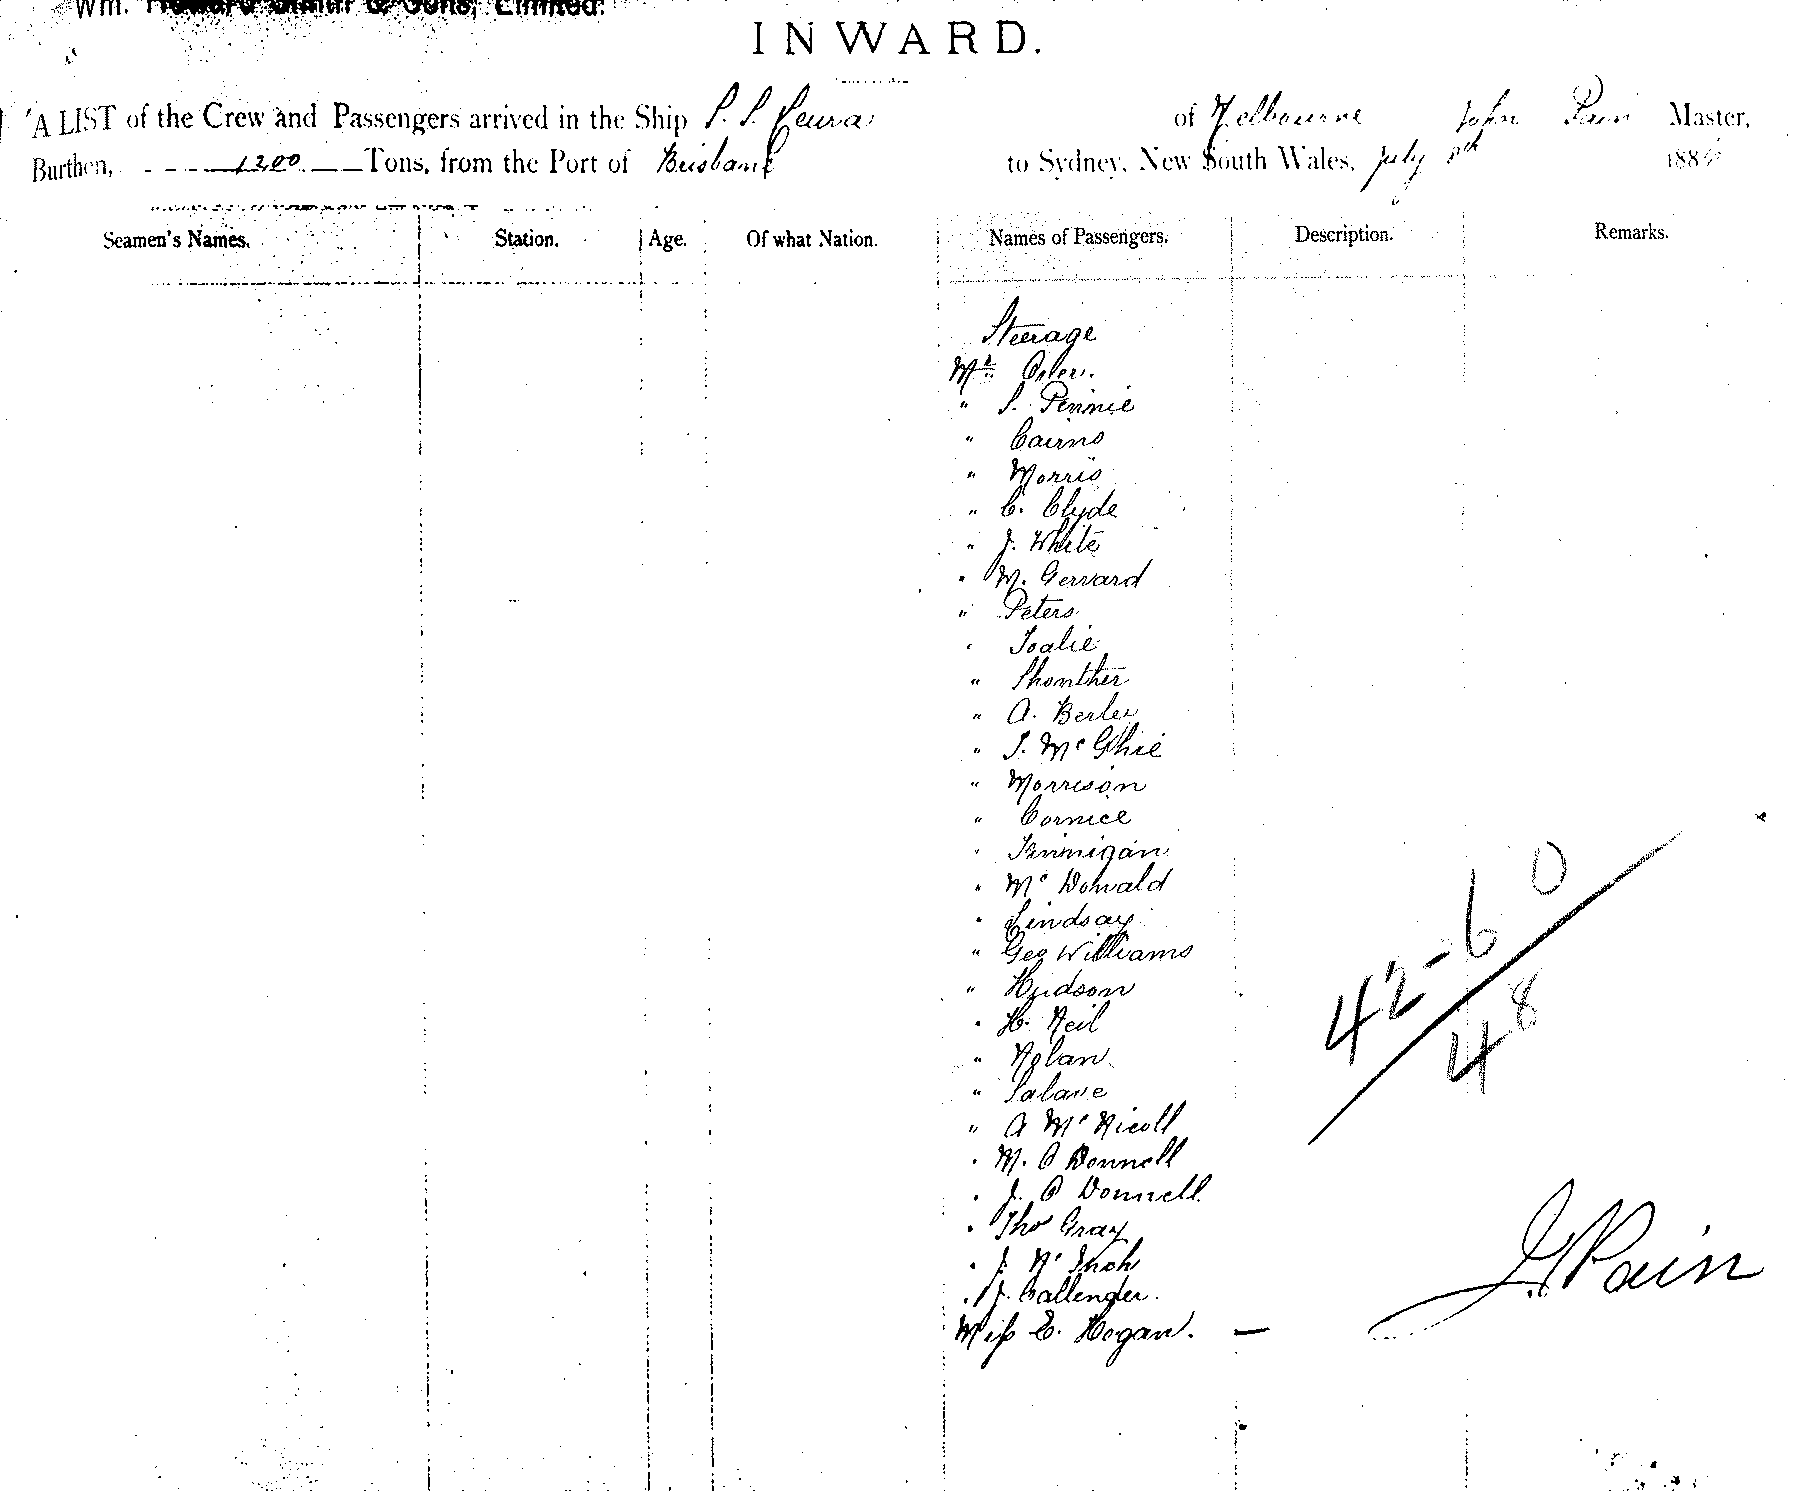 Wm. Howard Smith & Sons, Limited.
INWARD.
A LIST of the Crew and Passengers arrived in the Ship S. S. Keura of Melbourne John Pain Master,
Burthen, 1200 Tons, from the Port of Brisbane to Sydney, New South Wales, July 188
Seamen's Names. Station. Age. Of what Nation. Names of Passengers. Description. Remarks.
Steerage
Mr
" S. Pennie
" Cairns
" Morris
" C. Clyde
" J. White
" M. Gerrard
" Peters
" Toalie
" Shonther
" A. Berley
" S. McGhie
" Morrison
" Cornice
" Finnigan
" McDonald
" Lindsay
" Geo Williams
" Hudson
" H. Neil
" Nolan
" Salave
" A McNicoll
" M. O Donnell
" J. O Donnell
" Thos Gray
" J. Mc Inch
" J. Callender.
Miss E. Hogan. —
42-6 0
48
J Pain